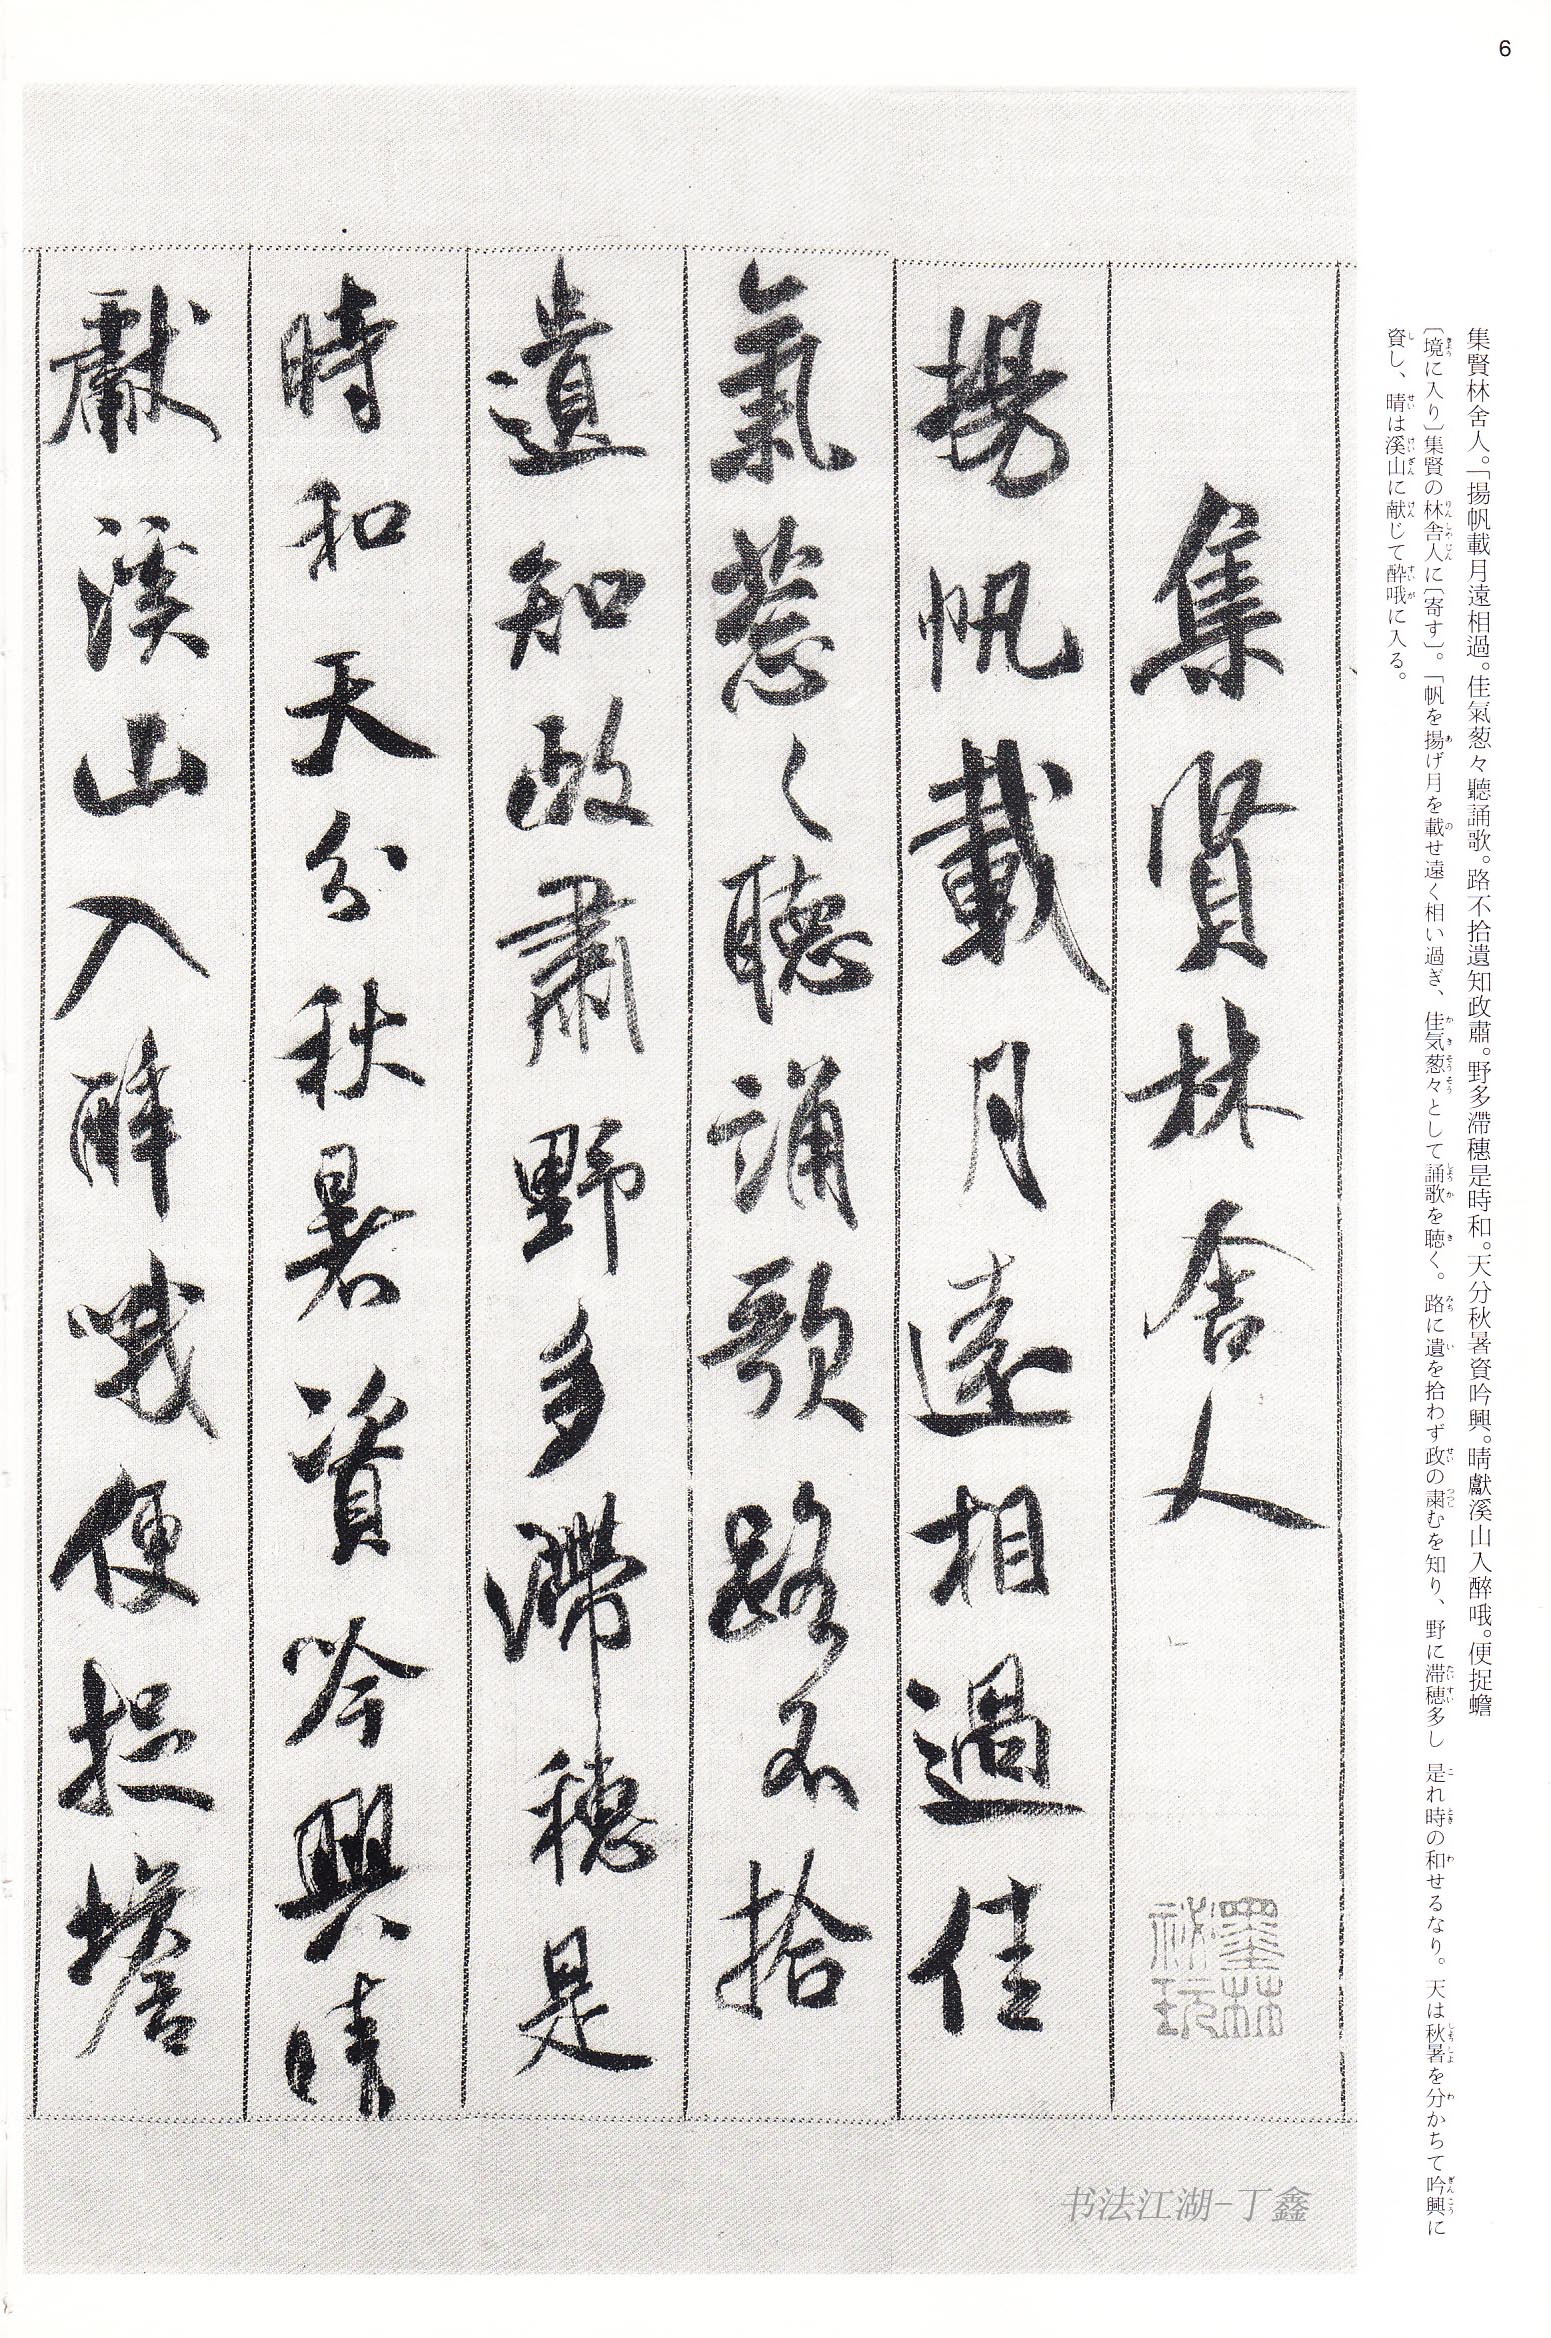 6
集賢林舍人。「揚帆載月遠相過。佳氣葱々聽誦歌。路不拾遺知政肅。野多滯穗是時和。天分秋暑資吟興。晴獻溪山入醉哦。便捉蟾
〔境に入り〕集賢の林舎人に〔寄す〕。「帆を揚げ月を載せ遠く相い過ぎ、佳気葱々として誦歌を聴く。路に遺を拾わず政の粛むを知り、野に滞穂多し 是れ時の和せるなり。天は秋暑を分かちて吟興に
資し、晴は溪山に献じて酔哦に入る。
集賢林舍人
揚帆載月遠相過佳
氣葱〻聽誦歌路不拾
遺知政肅野多滯穗是
時和天分秋暑資吟興晴
獻溪山入醉哦便捉蟾
墨林
祕玩
书法江湖-丁鑫